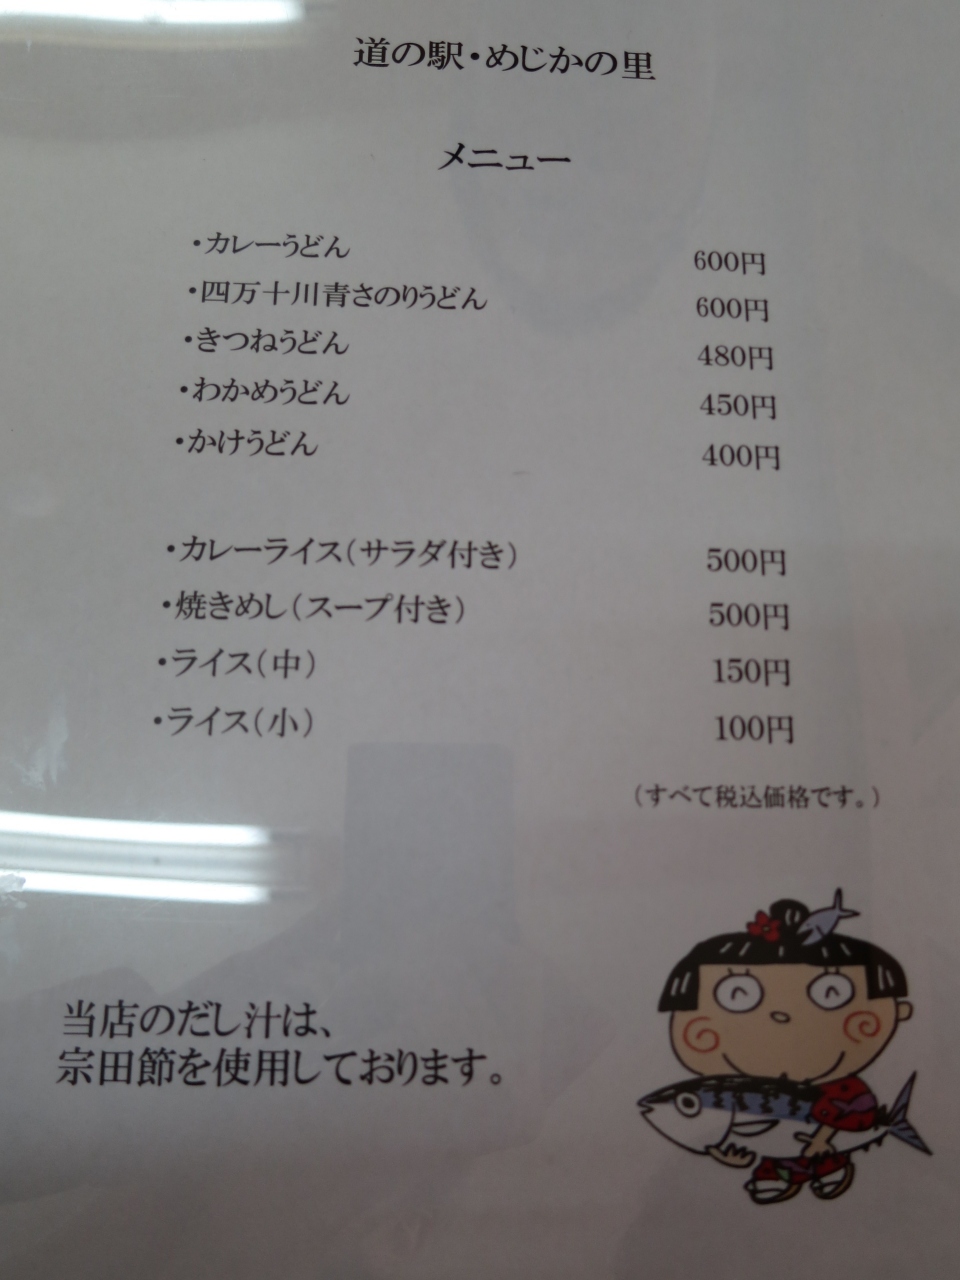 道の駅・めじかの里
メニュー
・カレーうどん 600円
・四万十川青さのりうどん 600円
・きつねうどん 480円
・わかめうどん 450円
・かけうどん 400円
・カレーライス(サラダ付き) 500円
・焼きめし(スープ付き) 500円
・ライス(中) 150円
・ライス(小) 100円
(すべて税込価格です。)
当店のだし汁は、
宗田節を使用しております。